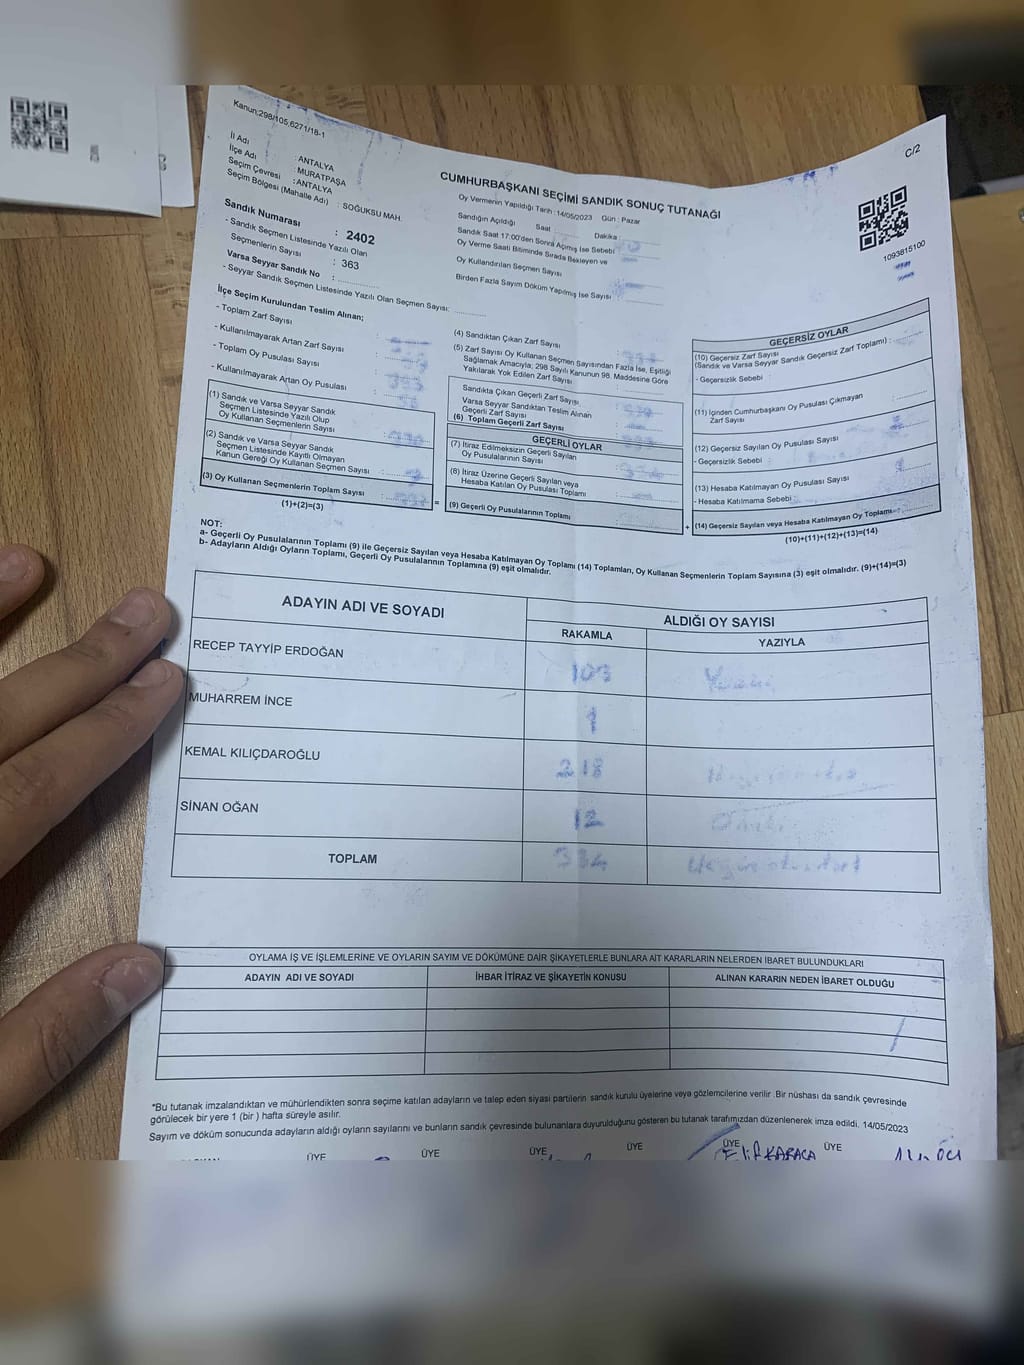 Kanun;298/105,6271/18-1
C/2
İl Adı : ANTALYA
İlçe Adı : MURATPAŞA
Seçim Çevresi : ANTALYA
Seçim Bölgesi (Mahalle Adı) : SOĞUKSU MAH.
Sandık Numarası : 2402
- Sandık Seçmen Listesinde Yazılı Olan
Seçmenlerin Sayısı : 363
Varsa Seyyar Sandık No :
- Seyyar Sandık Seçmen Listesinde Yazılı Olan Seçmen Sayısı:
CUMHURBAŞKANI SEÇİMİ SANDIK SONUÇ TUTANAĞI
Oy Vermenin Yapıldığı Tarih : 14/05/2023 Gün : Pazar
Sandığın Açıldığı Saat Dakika :
Sandık Saat 17:00'den Sonra Açımış İse Sebebi
Oy Verme Saati Bitiminde Sırada Bekleyen ve
Oy Kullandırılan Seçmen Sayısı
Birden Fazla Sayım Döküm Yapılmış İse Sayısı
1093815100
İlçe Seçim Kurulundan Teslim Alınan;
- Toplam Zarf Sayısı
- Kullanılmayarak Artan Zarf Sayısı
- Toplam Oy Pusulası Sayısı
- Kullanılmayarak Artan Oy Pusulası
(1) Sandık ve Varsa Seyyar Sandık
Seçmen Listesinde Yazılı Olup
Oy Kullanan Seçmenlerin Sayısı
(2) Sandık ve Varsa Seyyar Sandık
Seçmen Listesinde Kayıtlı Olmayan
Kanun Gereği Oy Kullanan Seçmen Sayısı
(3) Oy Kullanan Seçmenlerin Toplam Sayısı
(1)+(2)=(3)
=
(4) Sandıktan Çıkan Zarf Sayısı
(5) Zarf Sayısı Oy Kullanan Seçmen Sayısından Fazla İse, Eşitliği
Sağlamak Amacıyla; 298 Sayılı Kanunun 98. Maddesine Göre
Yakılarak Yok Edilen Zarf Sayısı
Sandıkta Çıkan Geçerli Zarf Sayısı
Varsa Seyyar Sandıktan Teslim Alınan
Geçerli Zarf Sayısı
(6) Toplam Geçerli Zarf Sayısı
GEÇERLİ OYLAR
(7) İtiraz Edilmeksizin Geçerli Sayılan
Oy Pusulalarının Sayısı
(8) İtiraz Üzerine Geçerli Sayılan veya
Hesaba Katılan Oy Pusulası Toplamı
(9) Geçerli Oy Pusulalarının Toplamı
+
GEÇERSİZ OYLAR
(10) Geçersiz Zarf Sayısı
(Sandık ve Varsa Seyyar Sandık Geçersiz Zarf Toplamı) :
- Geçersizlik Sebebi :
(11) İçinden Cumhurbaşkanı Oy Pusulası Çıkmayan
Zarf Sayısı
(12) Geçersiz Sayılan Oy Pusulası Sayısı
- Geçersizlik Sebebi :
(13) Hesaba Katılmayan Oy Pusulası Sayısı
- Hesaba Katılmama Sebebi :
(14) Geçersiz Sayılan veya Hesaba Katılmayan Oy Toplamı:
(10)+(11)+(12)+(13)=(14)
NOT:
a- Geçerli Oy Pusulalarının Toplamı (9) ile Geçersiz Sayılan veya Hesaba Katılmayan Oy Toplamı (14) Toplamları, Oy Kullanan Seçmenlerin Toplam Sayısına (3) eşit olmalıdır. (9)+(14)=(3)
b- Adayların Aldığı Oyların Toplamı, Geçerli Oy Pusulalarının Toplamına (9) eşit olmalıdır.
ADAYIN ADI VE SOYADI
ALDIĞI OY SAYISI
RAKAMLA YAZIYLA
RECEP TAYYİP ERDOĞAN 103
MUHARREM İNCE 1
KEMAL KILIÇDAROĞLU 218
SİNAN OĞAN 12
TOPLAM 334
OYLAMA İŞ VE İŞLEMLERİNE VE OYLARIN SAYIM VE DÖKÜMÜNE DAİR ŞİKAYETLERLE BUNLARA AİT KARARLARIN NELERDEN İBARET BULUNDUKLARI
ADAYIN ADI VE SOYADI İHBAR İTİRAZ VE ŞİKAYETİN KONUSU ALINAN KARARIN NEDEN İBARET OLDUĞU
*Bu tutanak imzalandıktan ve mühürlendikten sonra seçime katılan adayların ve talep eden siyasi partilerin sandık kurulu üyelerine veya gözlemcilerine verilir .Bir nüshası da sandık çevresinde
görülecek bir yere 1 (bir ) hafta süreyle asılır.
Sayım ve döküm sonucunda adayların aldığı oyların sayılarını ve bunların sandık çevresinde bulunanlara duyurulduğunu gösteren bu tutanak tarafımızdan düzenlenerek imza edildi. 14/05/2023
ÜYE ÜYE ÜYE ÜYE ÜYE ÜYE
Elif KARACA